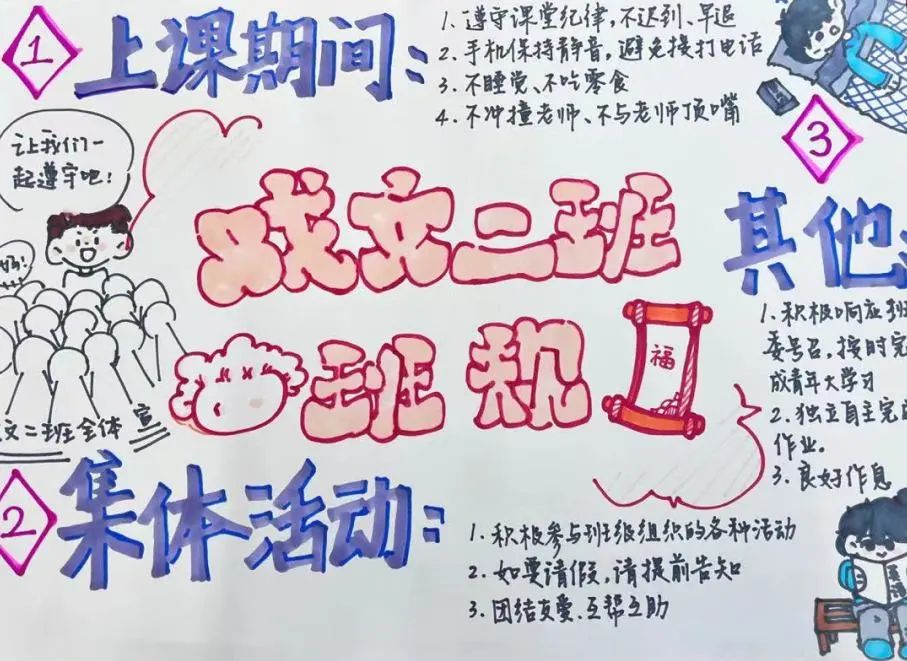 1 上课期间：
1. 遵守课堂纪律，不迟到、早退
2. 手机保持静音，避免接打电话
3. 不睡觉、不吃零食
4. 不冲撞老师、不与老师顶嘴
让我们一
起遵守吧！
好！
文二班全体 宣
戏文二班
班规
福
3 其他
1. 积极响应班
委号召，按时完
成青年大学习
2. 独立自主完成
作业。
3. 良好作息
2 集体活动：
1. 积极参与班级组织的各种活动
2. 如要请假，请提前告知
3. 团结友爱、互帮互助
英语